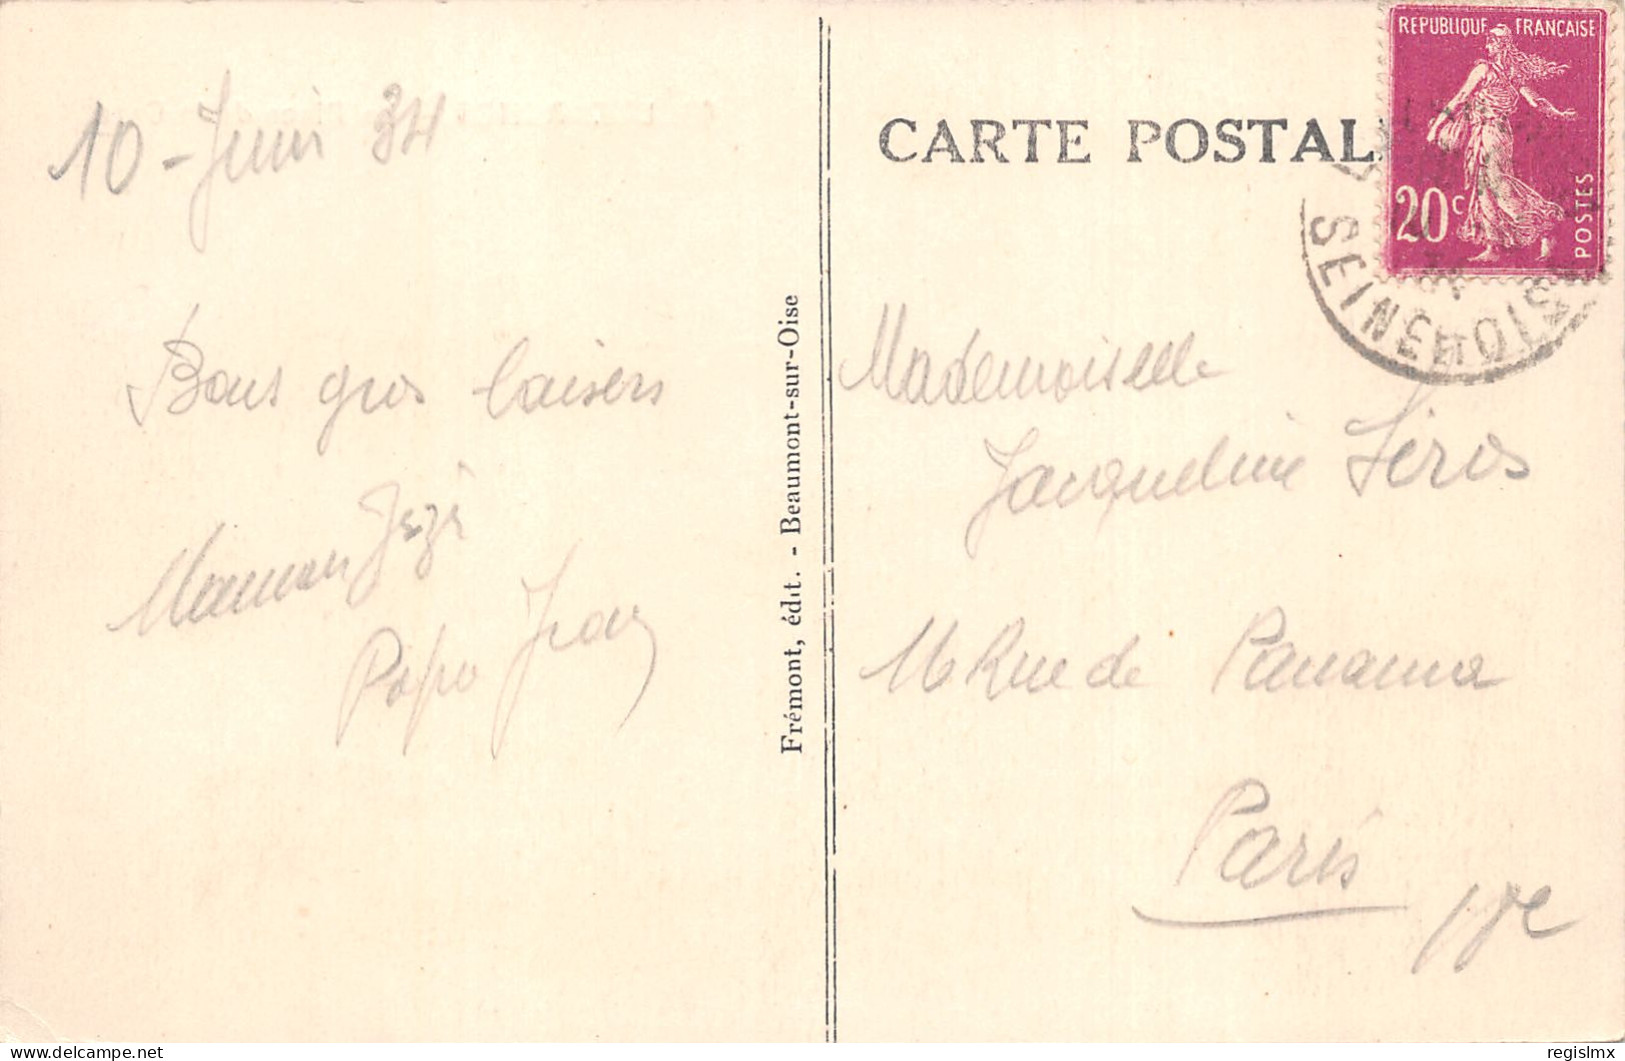 10 - Juin 34
Bons gros baisers
Maman Zezé
Papa Jean
Frémont, édit. - Beaumont-sur-Oise
CARTE POSTALE
REPUBLIQUE FRANÇAISE
20c
POSTES
SEINE-&-OISE
Mademoiselle
Jacqueline
16 Rue de Panama
Paris
regislmx
www.delcampe.net